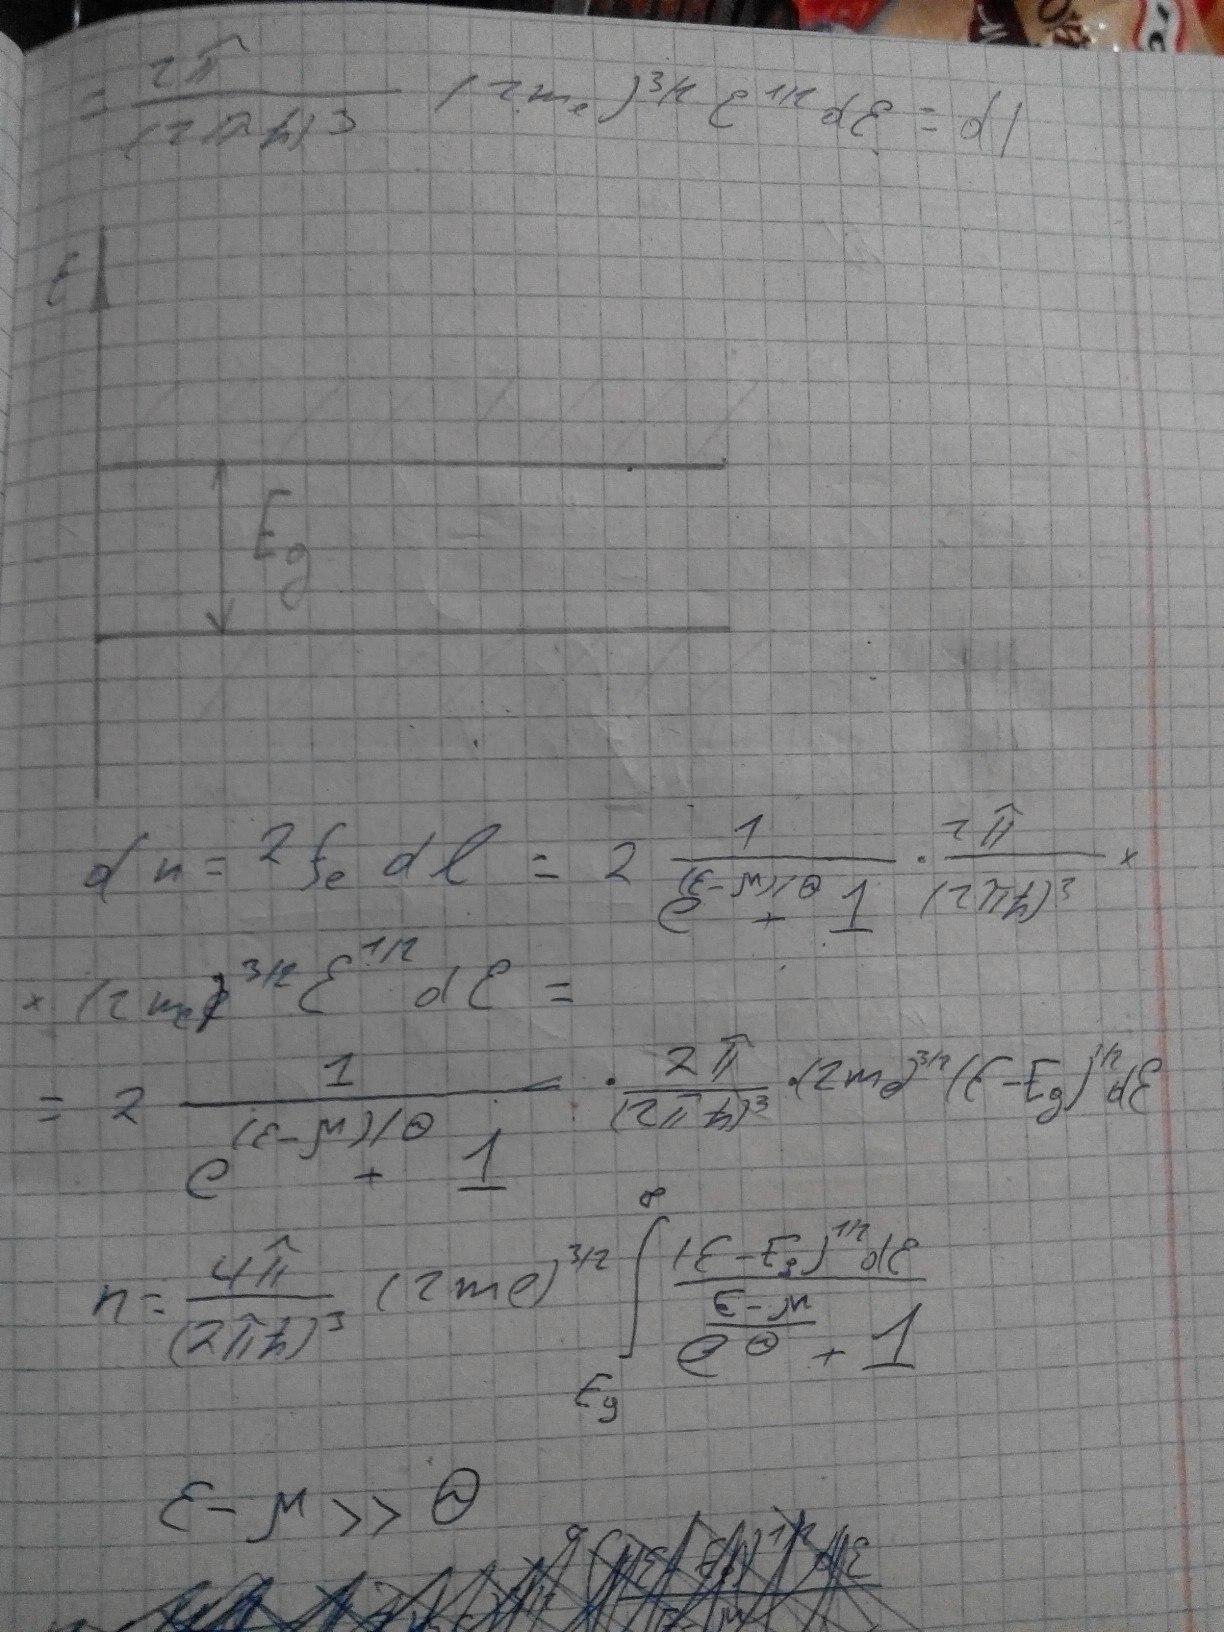 = 2π/(2πħ)³ (2mₑ)^{3/2} ε^{1/2} dε = dl
E
E_g
dn = 2 fₑ dl = 2 1/(e^{(ε-μ)/Θ} + 1) · 2π/(2πħ)³ ×
× (2mₑ)^{3/2} ε^{1/2} dε =
= 2 1/(e^{(ε-μ)/Θ} + 1) · 2π/(2πħ)³ · (2mₑ)^{3/2} (ε-E_g)^{1/2} dε
n = 4π/(2πħ)³ (2mₑ)^{3/2} ∫_{E_g}^{∞} (ε-E_g)^{1/2} dε/(e^{(ε-μ)/Θ} + 1)
ε - μ >> Θ